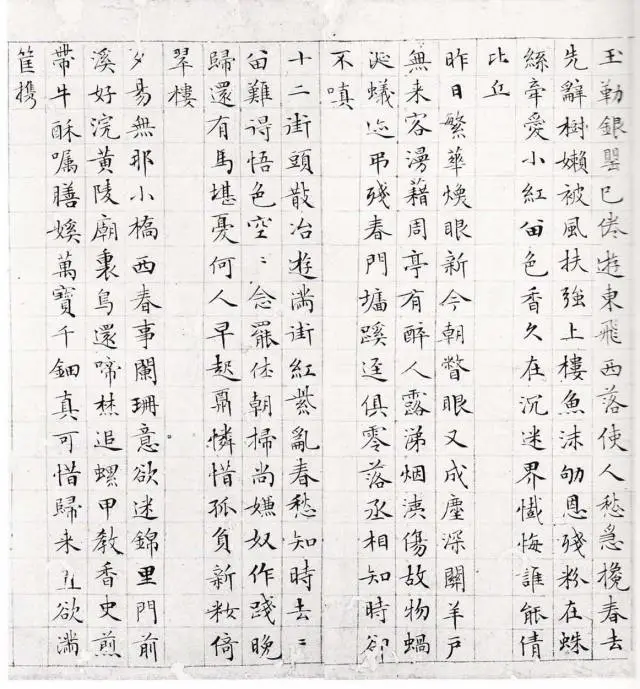 玉勒銀罌已倦遊東飛西落使人愁急攙春去
先辭樹嬾被風扶強上樓魚沫吻恩殘粉在蛛
絲牽愛小紅留色香久在沉迷界懺悔誰能倩
比丘
昨日繁華煥眼新今朝瞥眼又成塵深關羊戶
無来客漫藉周亭有醉人露涕烟洟傷故物蝸
涎蟻迹弔殘春門墻蹊逕俱零落丞相知時卻
不嗔
十二街頭散冶遊滿街紅紫亂春愁知時去〻
留難得悟色空〻念罷休朝掃尚嫌奴作踐晚
歸還有馬堪憂何人早起憐惜孤負新妝倚
翠樓
夕昜無那小橋西春事闌珊意欲迷錦里門前
溪好浣黃陵廟裏鳥還啼焚追螺甲教香史煎
帶牛酥囑膳媐萬寶千鈿真可惜歸来直欲滿
筐携